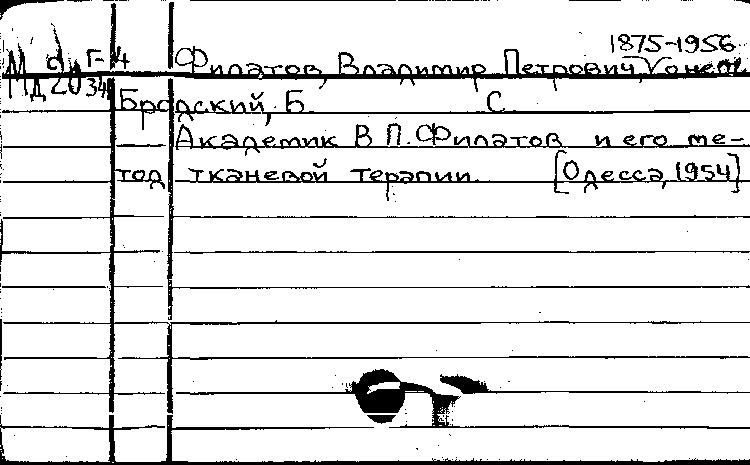 1875-1956
Филатов, Владимир Петрович,
Мд 34
Бродский, Б. С.
Академик В П. Филатов и его ме-
тод тканевой терапии. [Одесса, 1954]